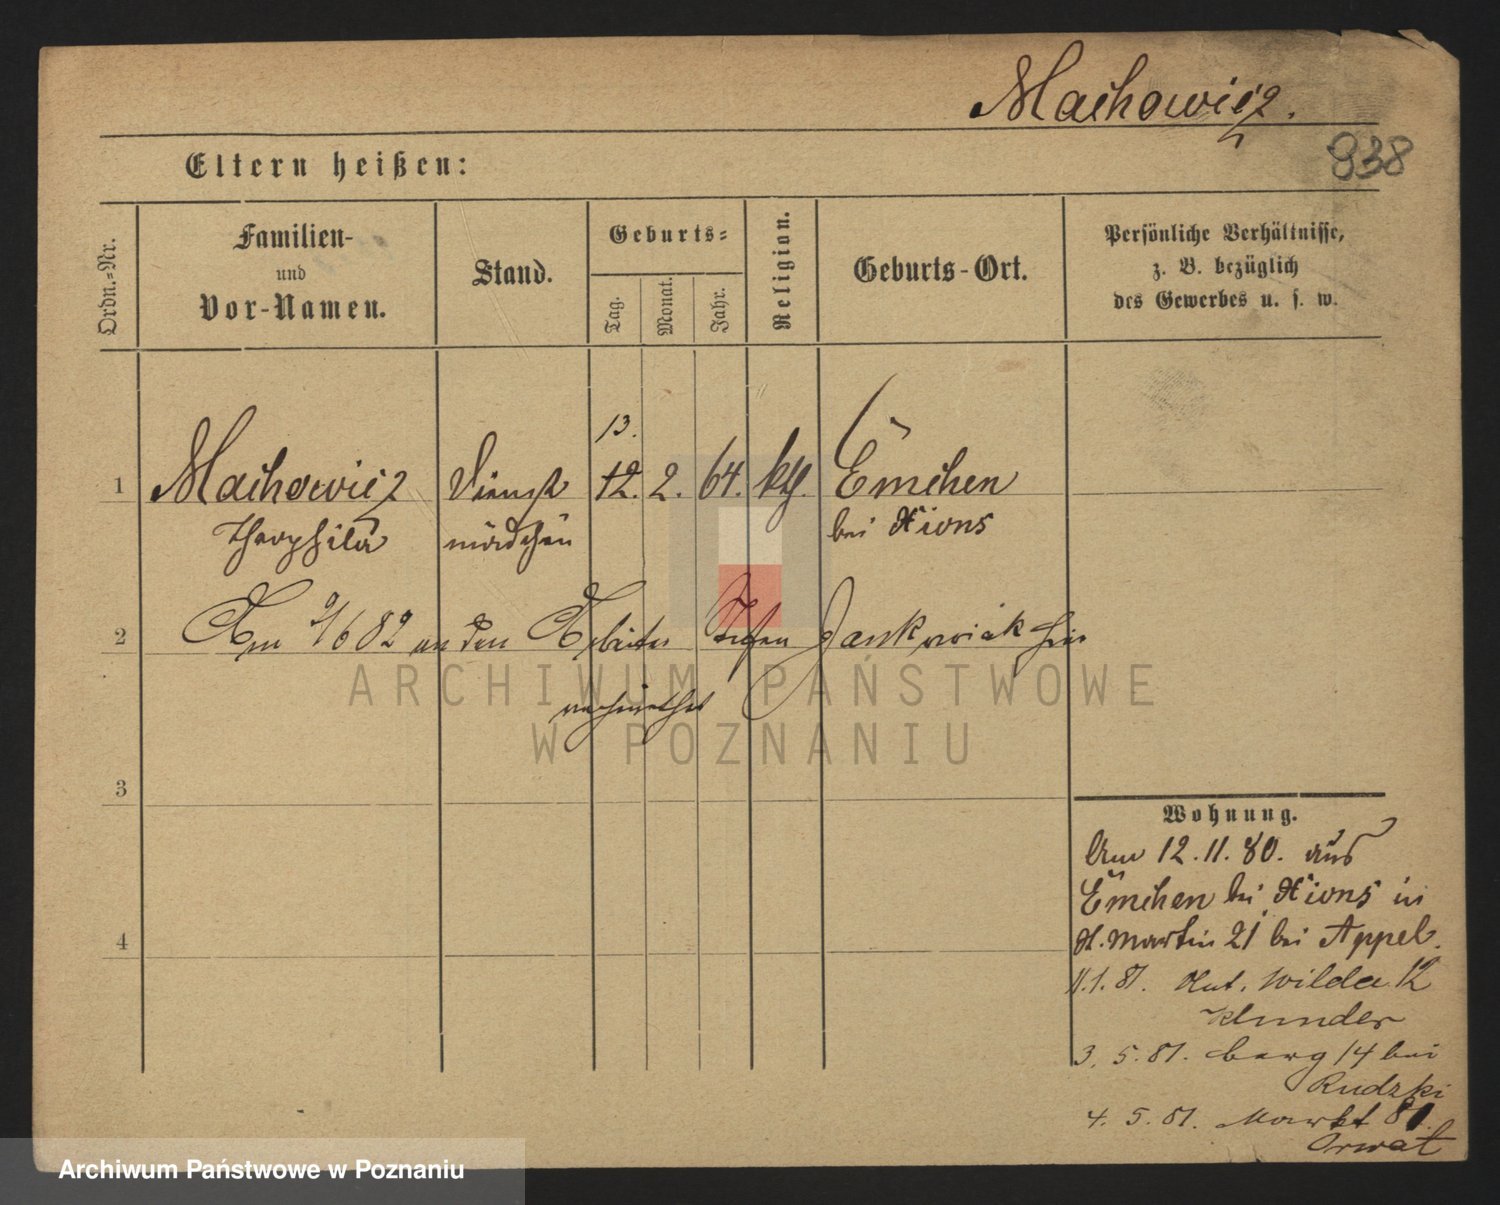 Machowicz.
938
Eltern heißen:
Ordn.-Nr.
Familien-
und
Vor-Namen.
Stand.
Geburts-
Tag.
Monat.
Jahr.
Religion.
Geburts-Ort.
Persönliche Verhältnisse,
z. B. bezüglich
des Gewerbes u. s. w.
13.
1 Machowicz Dienst 12. 2. 64. kth. Emchen
Theophila mädchen bei Xions
2 Am 9/6 82 an den Arbeiter Jankowiak hier
verheirathet
3
4
Wohnung.
Am 12.11.80. aus
Emchen bei Xions in
St. Martin 21 bei Appel.
11.1.81. Unt. Wilda 12
Klunder
3. 5. 81. Berg 14 bei
Rudzki
4. 5. 81. Markt 81.
Orwat
ARCHIWUM PAŃSTWOWE
W POZNANIU
Archiwum Państwowe w Poznaniu